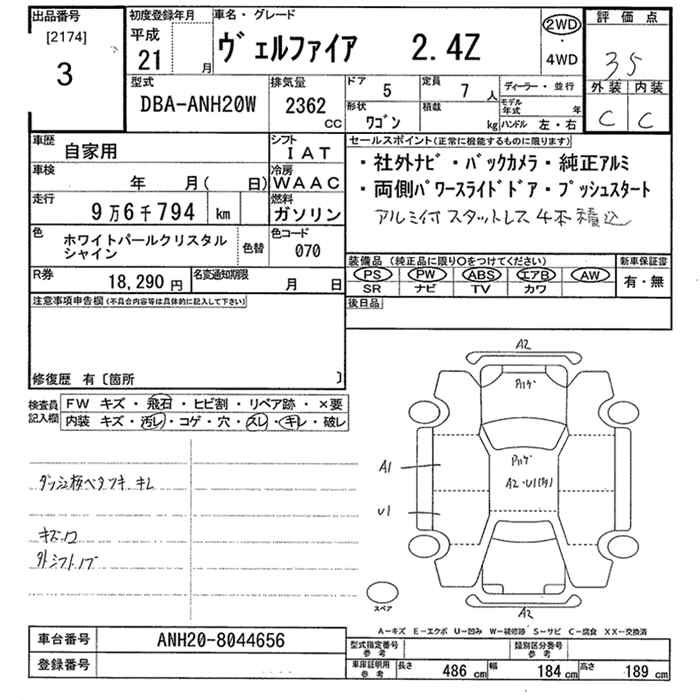 出品番号
[2174]
3
初度登録年月
平成
21 月
車名・グレード
ヴェルファイア 2.4Z
2WD
・
4WD
評価点
35
外装 内装
C C
型式
DBA-ANH20W
排気量
2362
CC
ドア
5
定員
7 人
形状
ワゴン
積載
kg
ディーラー・並行
モデル年式 年
ハンドル 左・右
車歴
自家用
シフト
IAT
車検
年 月( 日)
冷房
WAAC
走行
9万6千794 km
燃料
ガソリン
色
ホワイトパールクリスタル
シャイン
色替
色コード
070
R券
18,290 円
名変通知期限
月 日
セールスポイント(正常に機能するものに限ります)
・社外ナビ・バックカメラ・純正アルミ
・両側パワースライドドア・プッシュスタート
アルミ付スタットレス4本積込
装備品(純正品に限り○をつけてください)
PS PW ABS エアB AW
SR ナビ TV カワ
新車保証書
有・無
後日品
注意事項申告欄(不具合内容等は具体的に記入して下さい)
修復歴 有〔箇所 〕
検査員
記入欄
FW キズ・飛石・ヒビ割・リペア跡・×要
内装 キズ・汚レ・コゲ・穴・スレ・キレ・破レ
キズ、凹
外シフトノブ
A2
A1
U1
A2
スペア
A-キズ E-エクボ U-凹み W-補修跡 S-サビ C-腐食 XX-交換済
車台番号
ANH20-8044656
登録番号
型式指定番号
参考
類別区分番号
参考
車庫証明用
参考
長さ 486 cm 幅 184 cm 高さ 189 cm